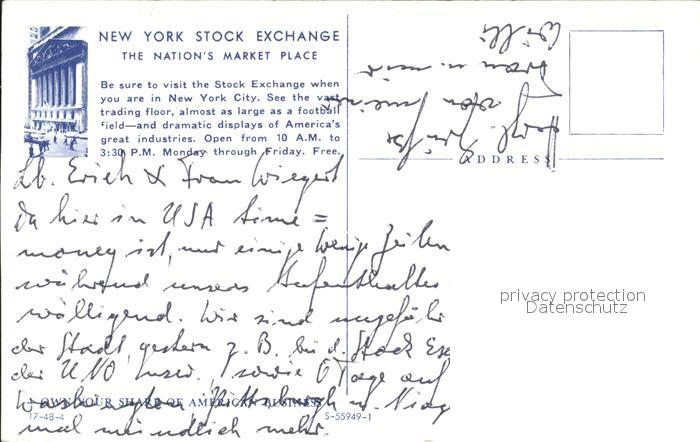 NEW YORK STOCK EXCHANGE
THE NATION'S MARKET PLACE
Be sure to visit the Stock Exchange when
you are in New York City. See the vast
trading floor, almost as large as a football
field—and dramatic displays of America's
great industries. Open from 10 A.M. to
3:30 P.M. Monday through Friday. Free.
Lb. Erich & Frau Wiegert
Da hier in USA time =
money ist, nur einige wenige Zeilen
während unseres Aufenthaltes
. Wir sind ungefähr
der Stadt, gestern z.B. bei d. Stock Exc
der UNO sowie Tage auf
Washington, Pittsburgh u. Niag
mal mündlich mehr.
Herzl. Grüße
von meiner
Frau u. mir
Willi
ADDRESS
OWN YOUR SHARE OF AMERICAN BUSINESS
17-48-4 S-55949-1
privacy protection
Datenschutz